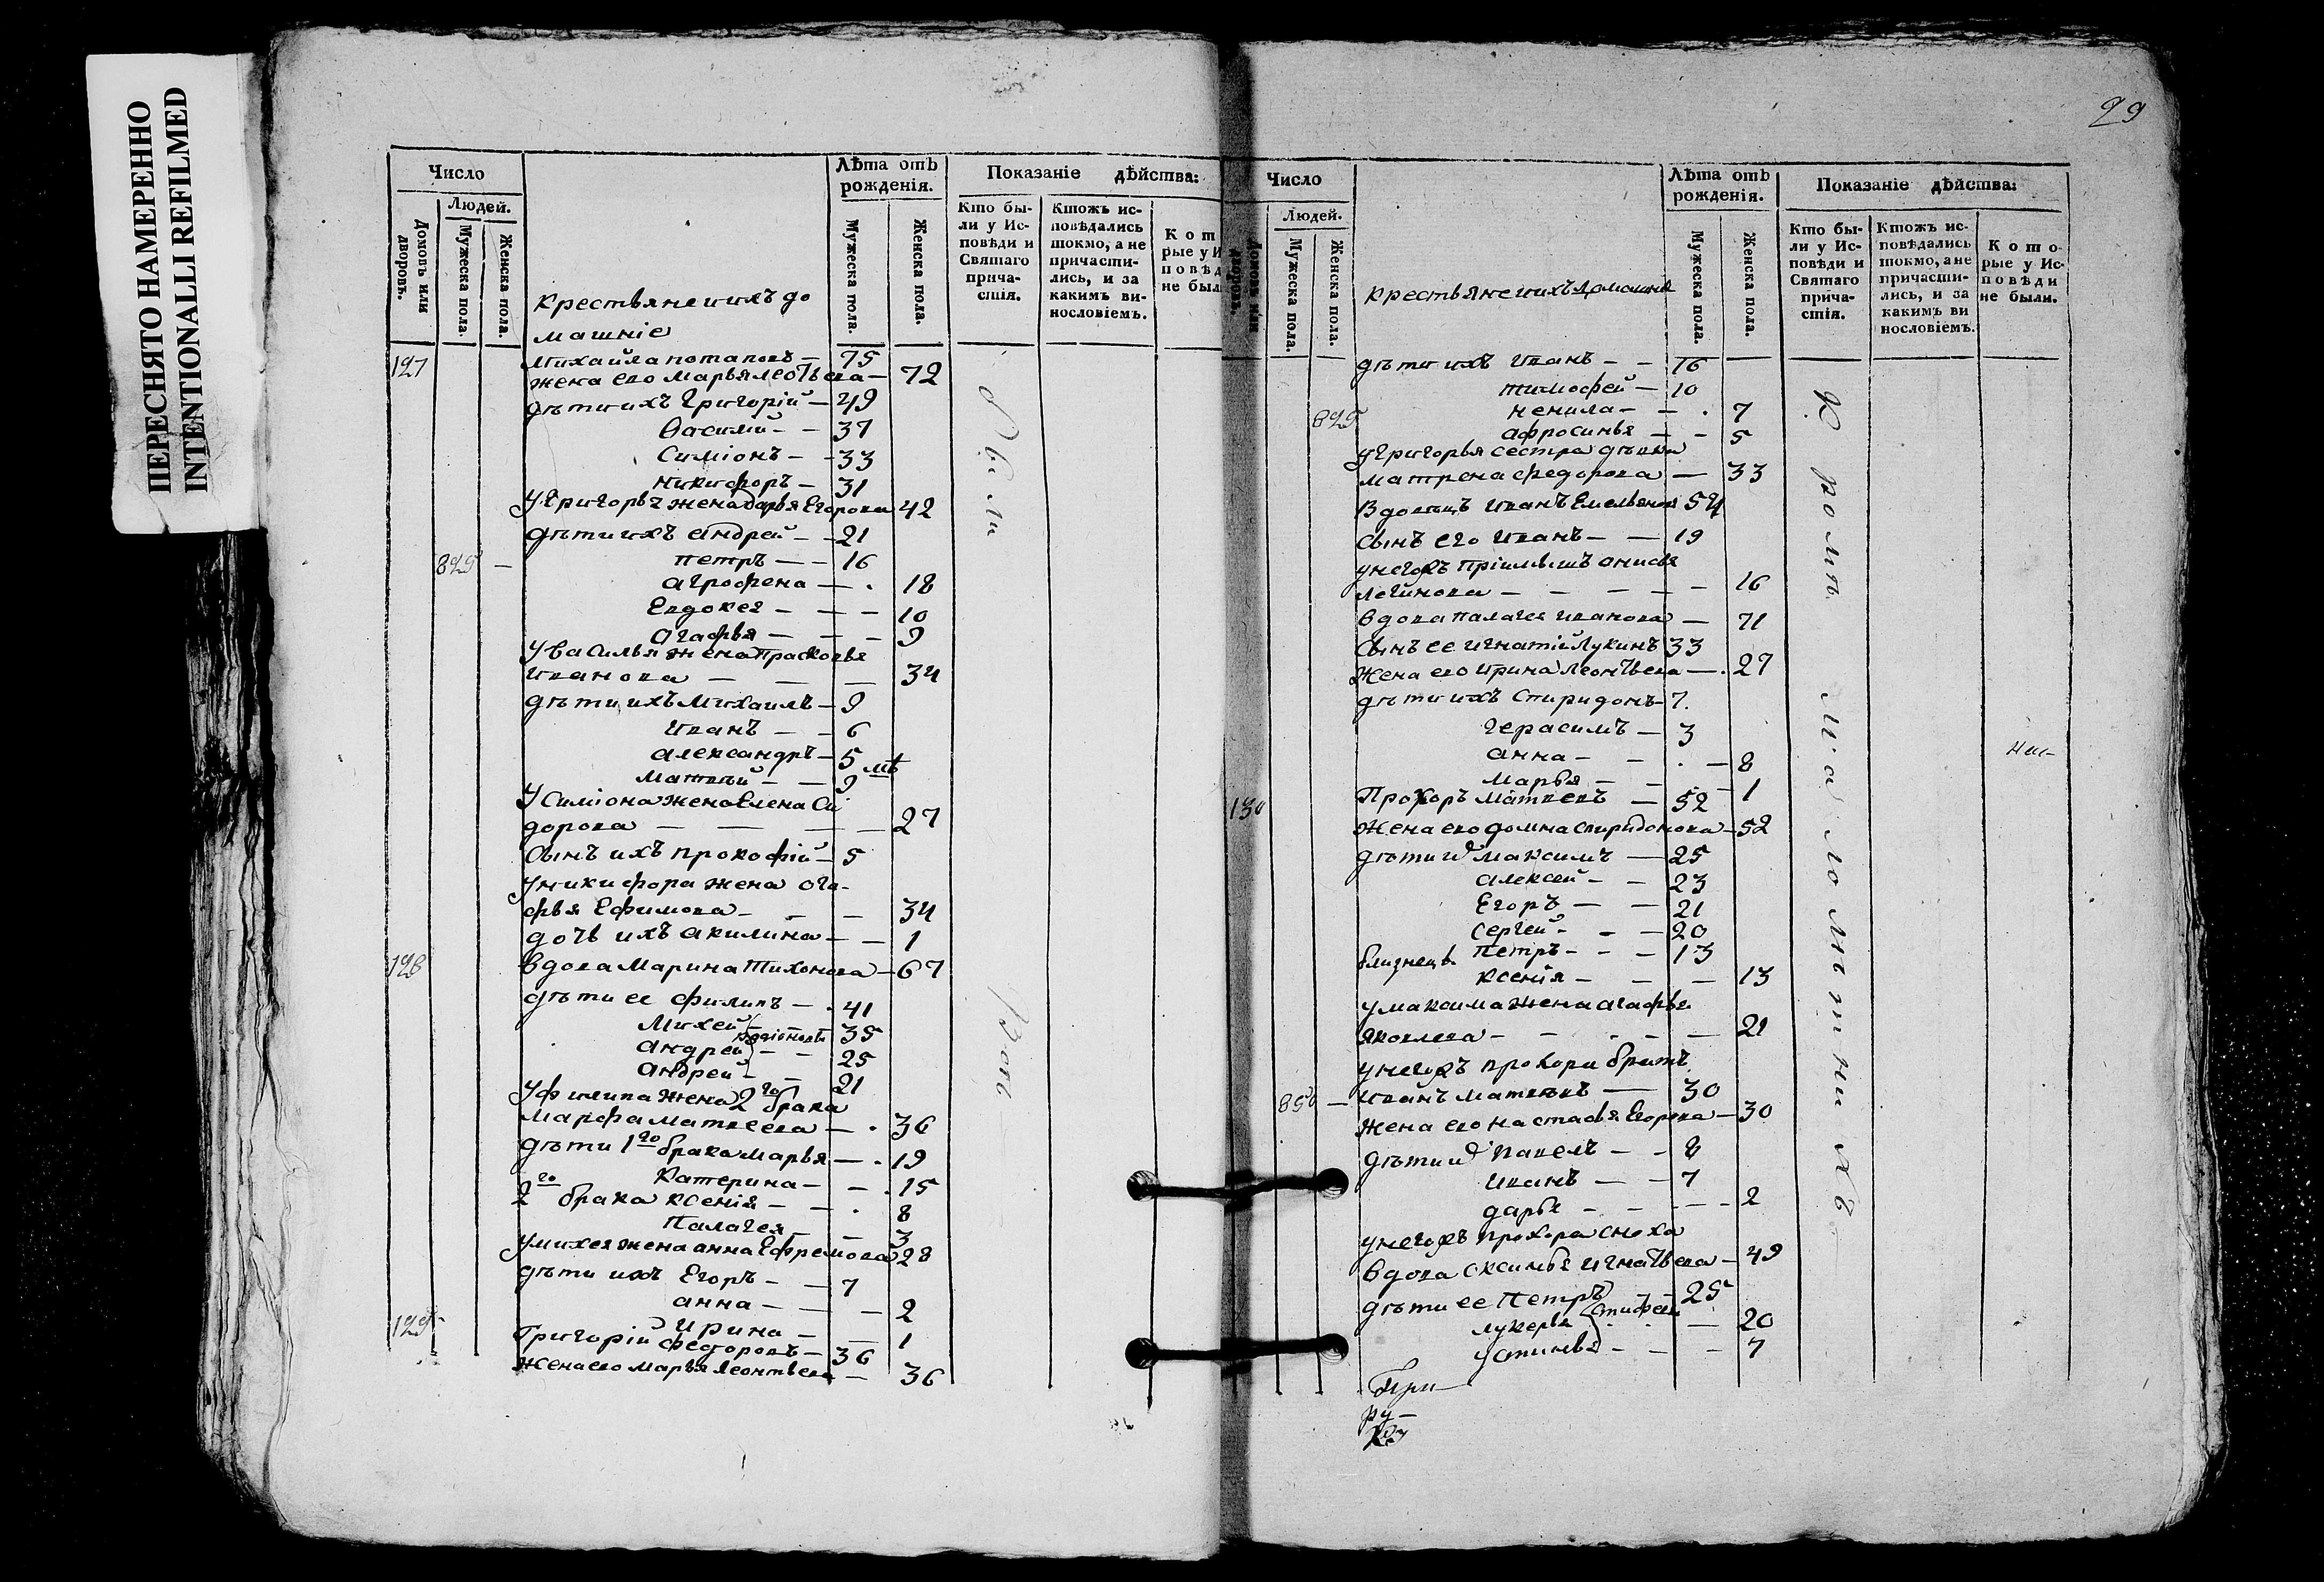 ПЕРЕСНЯТО НАМЕРЕННО
INTENTIONALLI REFILMED
Число
Людей.
Домовъ или дворовъ.
Мужеска пола.
Женска пола.
Крестьяне и ихъ до
машніе
Лѣта отъ
рожденія.
Мужеска пола.
Женска пола.
Показаніе дѣйства:
Кто бы-
ли у Ис-
повѣди и
Святаго
прича-
стія.
Ктожъ ис-
повѣдались
токмо, а не
причасти-
лись, и за
какимъ ви-
нословіемъ.
Кот
рые у И
повѣд
не был
127 Михайла Потаповъ — 75
жена его Марья Леотьева — 72
дѣти ихъ Григорій — 49
Василій — 37
Симіонъ — 33
Никифоръ — 31
У Григорья жена Дарья Егорова 42
дѣти ихъ Андрей — 21
829 — Петръ — 16
Агрофена — 18
Евдокея — 10
Агафья — 9
У Василья жена Прасковья
Иванова — 34
дѣти ихъ Михаилъ — 9
Иванъ — 6
Александръ — 5
Матвѣй — 9 мѣ
У Симіона жена Елена Си
дорова — 27
Сынъ ихъ Прокофій — 5
У Никифора жена Ага-
фья Ефимова — 34
дочь ихъ Акилина — 1
128 вдова Марина Тихонова — 67
дѣти ее Филипъ — 41
Михей — 35
Андрей — 25
Андрей — 21
У Филипа жена 2го брака
Марфа Матвеева — 36
дѣти 1го брака Марья — 19
Катерина — 15
2го брака Ксенія — 8
Палагея — 3
У Михея жена Анна Ефремова 28
дѣти ихъ Егоръ — 7
Анна — 2
Ирина — 1
129 Григорій Федоровъ — 36
жена его Марья Леонтьева — 36
Были
29
Число
Людей.
Домовъ или дворовъ.
Мужеска пола.
Женска пола.
Крестьяне и ихъ домашнія
Лѣта отъ
рожденія.
Мужеска пола.
Женска пола.
Показаніе дѣйства:
Кто бы-
ли у Ис-
повѣди и
Святаго
прича-
стія.
Ктожъ ис-
повѣдались
токмо, а не
причасти-
лись, и за
какимъ ви
нословіемъ.
Кото-
рые у Ис-
повѣди
не были.
дѣти ихъ Иванъ — 16
Тимофей — 10
829 Ненила — 7
Афросинья — 5
У Григорья сестра дѣвка
Матрена Федорова — 33
Вдовецъ Иванъ Емельянов 54
Сынъ его Иванъ — 19
у негожъ пріимышъ Анисья
Логинова — 16
вдова Палагея Иванова — 71
Сынъ ее Игнатій Лукинъ 33
Жена его Ирина Леонтьева — 27
дѣти ихъ Спиридонъ — 7
Герасимъ — 3
Анна — 8
Марья — 1
130 Прохоръ Матвеевъ — 52
Жена его Домна Спиридонова — 52
дѣти их Максимъ — 25
Алексей — 23
Егоръ — 21
Сергей — 20
близнецы Петръ — 13
Ксенія — 13
у Максима жена Агафья
Яковлева — 21
у негожъ Прохора братъ
850 — Иванъ Матвѣевъ — 30
Жена его Настасья Егорова — 30
дѣти их Павелъ — 8
Иванъ — 7
Дарья — 2
у негожъ Прохора сноха
вдова Оксинья Игнатьева — 49
дѣти ее Петръ — 25
Лукерья — 20
Устинья — 7
Кромѣ
малолѣтнихъ
при
ру
ку